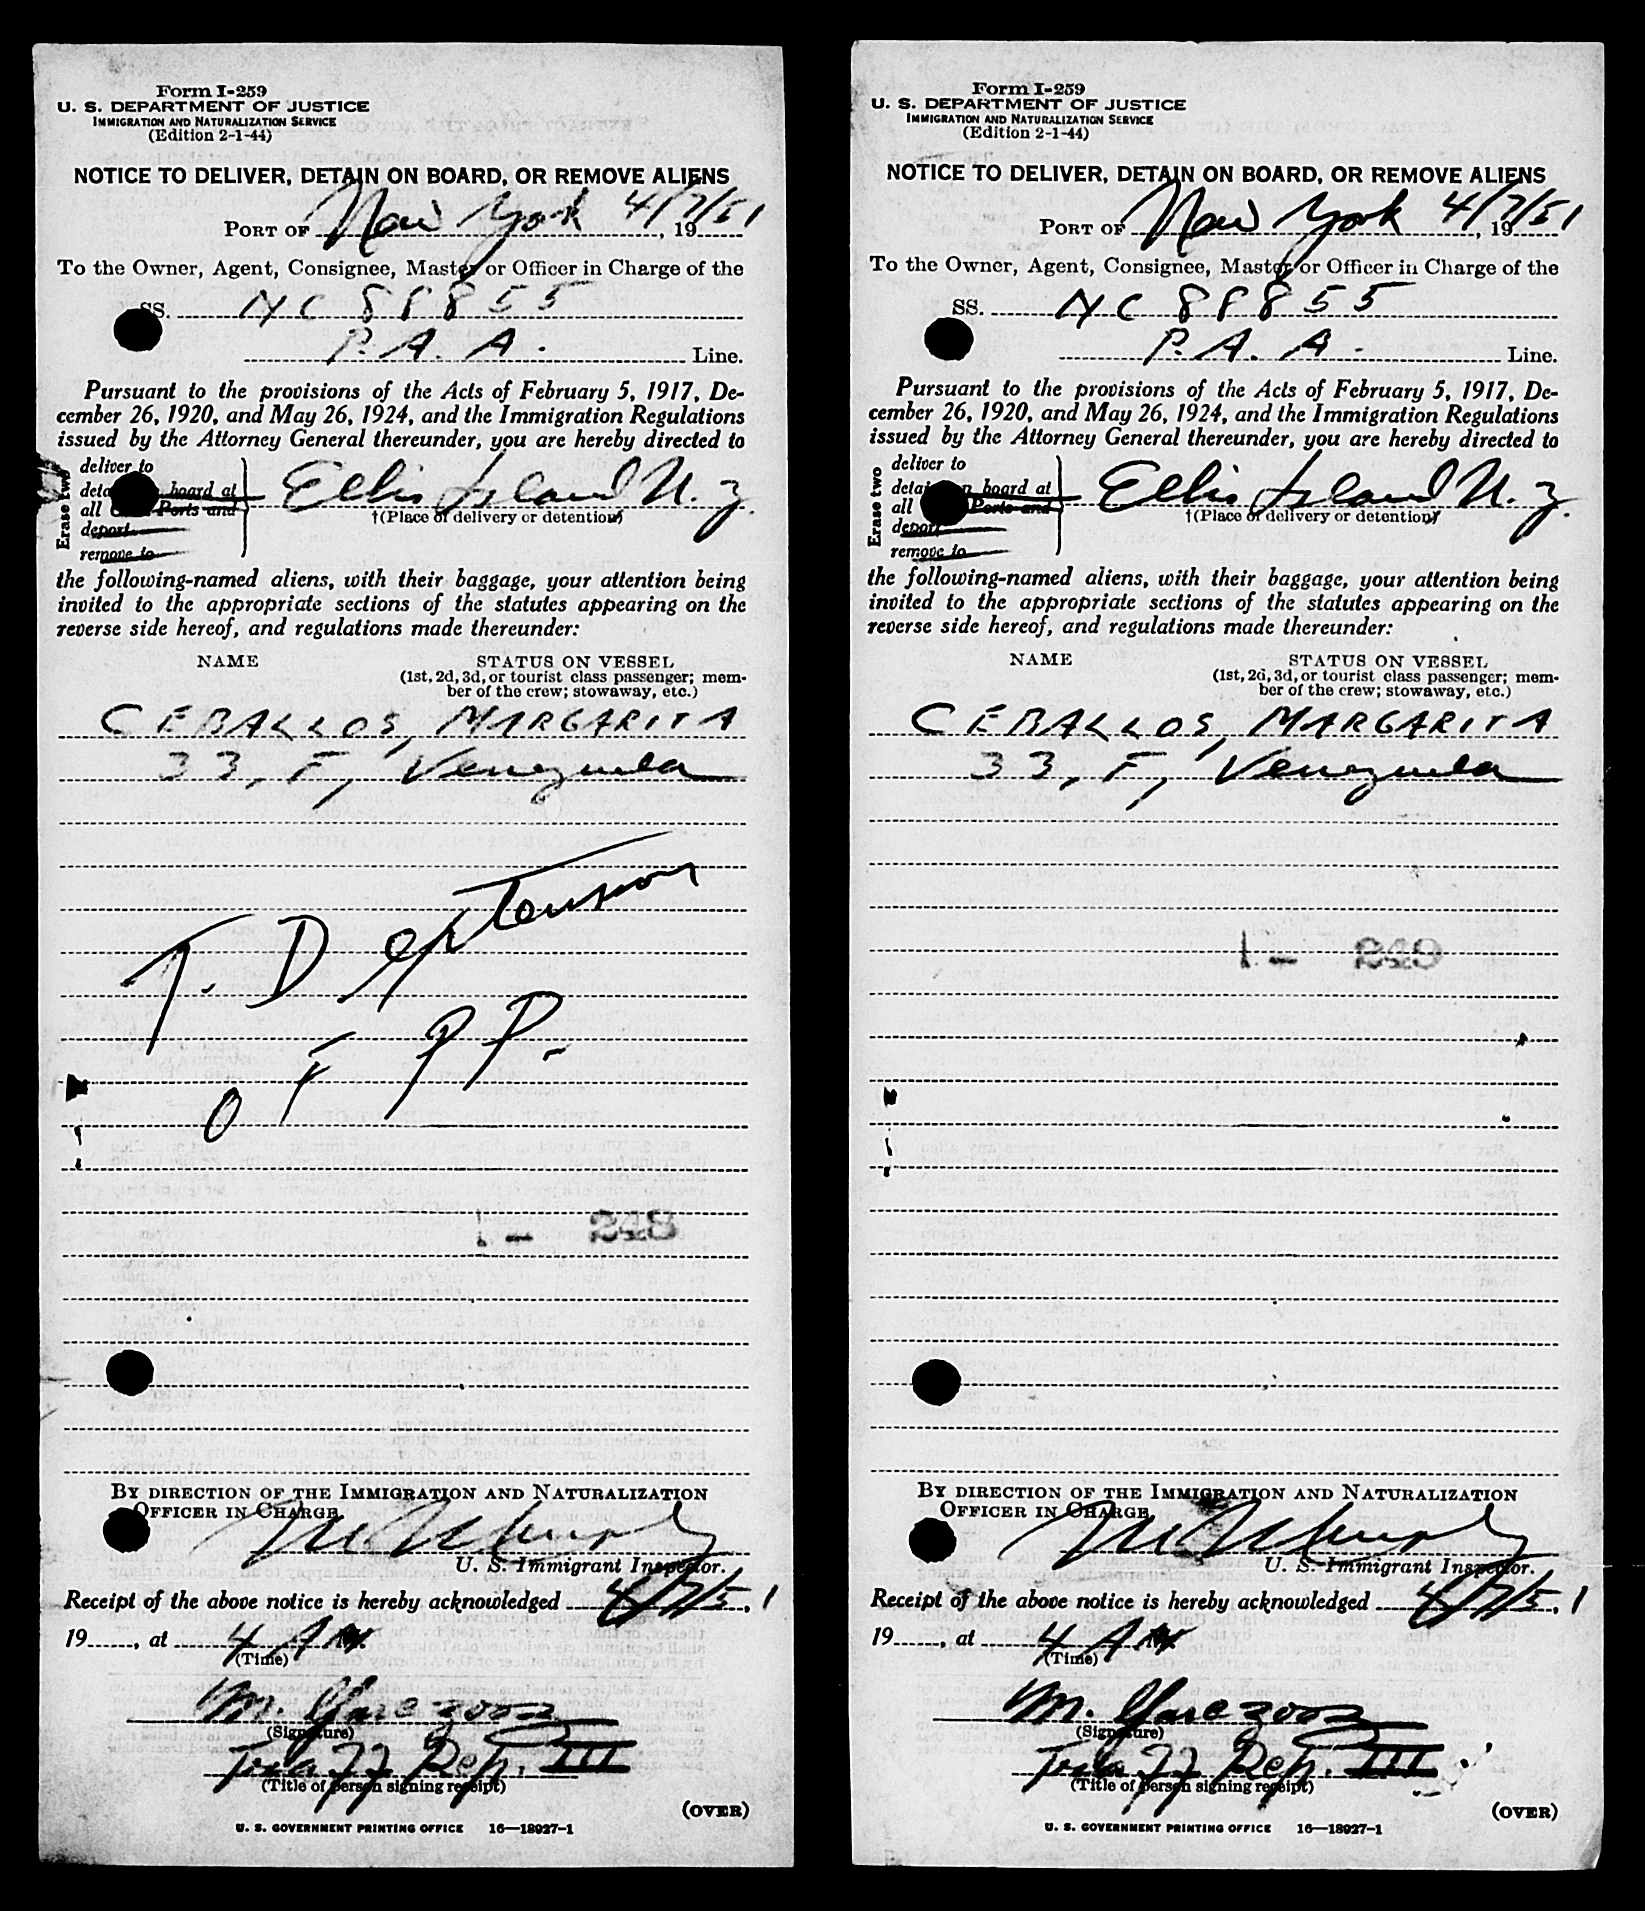 Form I-259
U. S. DEPARTMENT OF JUSTICE
IMMIGRATION AND NATURALIZATION SERVICE
(Edition 2-1-44)
NOTICE TO DELIVER, DETAIN ON BOARD, OR REMOVE ALIENS
PORT OF New York 4/7/51, 19
To the Owner, Agent, Consignee, Master or Officer in Charge of the
SS. NC 88855
P. A. A. Line.
Pursuant to the provisions of the Acts of February 5, 1917, De-
cember 26, 1920, and May 26, 1924, and the Immigration Regulations
issued by the Attorney General thereunder, you are hereby directed to
Erase two
deliver to
board at
all Ports and
deport
remove to
Ellis Island N. Y.
†(Place of delivery or detention)
the following-named aliens, with their baggage, your attention being
invited to the appropriate sections of the statutes appearing on the
reverse side hereof, and regulations made thereunder:
NAME STATUS ON VESSEL
(1st, 2d, 3d, or tourist class passenger; mem-
ber of the crew; stowaway, etc.)
CEBALLOS, MARGARITA
33, F, Venezuela
T. D extension
of PP.
1- 248
BY DIRECTION OF THE IMMIGRATION AND NATURALIZATION
OFFICER IN CHARGE
Murphy
U. S. Immigrant Inspector.
Receipt of the above notice is hereby acknowledged 4/7/51,
19, at 4 AM
(Time)
M.
(Signature)
Rep. III
(Title of person signing receipt)
(OVER)
U. S. GOVERNMENT PRINTING OFFICE 16—18927-1
Form I-259
U. S. DEPARTMENT OF JUSTICE
IMMIGRATION AND NATURALIZATION SERVICE
(Edition 2-1-44)
NOTICE TO DELIVER, DETAIN ON BOARD, OR REMOVE ALIENS
PORT OF New York 4/7/51, 19
To the Owner, Agent, Consignee, Master or Officer in Charge of the
SS. NC 88855
P. A. A. Line.
Pursuant to the provisions of the Acts of February 5, 1917, De-
cember 26, 1920, and May 26, 1924, and the Immigration Regulations
issued by the Attorney General thereunder, you are hereby directed to
Erase two
deliver to
detain on board at
all Ports and
deport
remove to
Ellis Island N. Y.
†(Place of delivery or detention)
the following-named aliens, with their baggage, your attention being
invited to the appropriate sections of the statutes appearing on the
reverse side hereof, and regulations made thereunder:
NAME STATUS ON VESSEL
(1st, 2d, 3d, or tourist class passenger; mem-
ber of the crew; stowaway, etc.)
CEBALLOS, MARGARITA
33, F, Venezuela
1- 249
BY DIRECTION OF THE IMMIGRATION AND NATURALIZATION
OFFICER IN CHARGE
Murphy
U. S. Immigrant Inspector.
Receipt of the above notice is hereby acknowledged 4/7/51,
19, at 4 AM
(Time)
M.
(Signature)
Rep. III
(Title of person signing receipt)
(OVER)
U. S. GOVERNMENT PRINTING OFFICE 16—18927-1